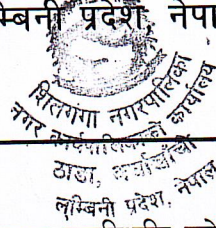 म्बिनी प्रदेश, नेपा
शितगंगा नगरपालिका
नगर कार्यपालिकाको कार्यालय
ठाडा, अर्घाखाँची
लुम्बिनी प्रदेश, नेपाल